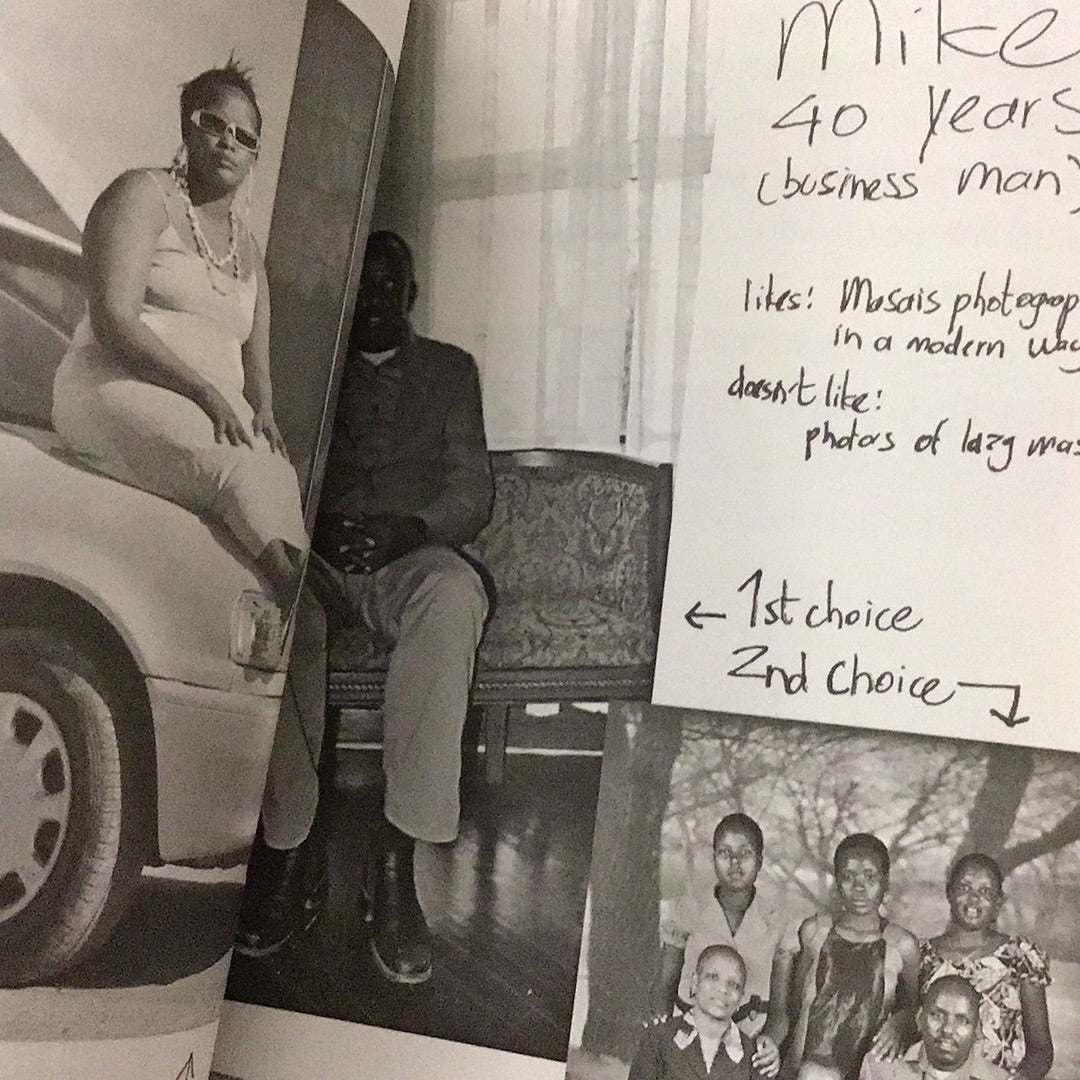 Mike
40 years
(business man)
likes: Masais photograp
in a modern way
doesn't like:
photos of lazy mas
← 1st choice
2nd choice